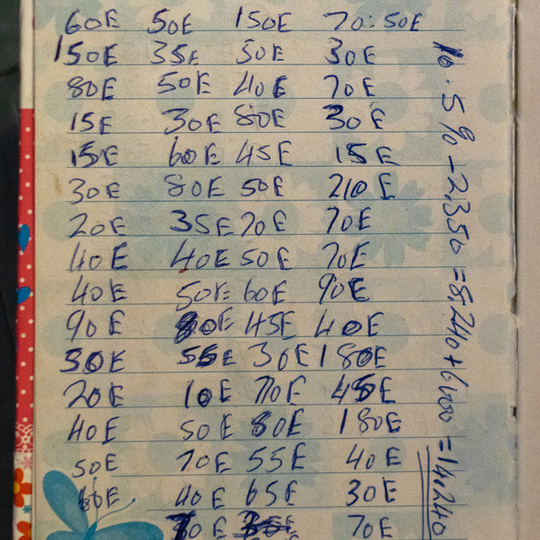 60E 50E 150E 70:50E
150E 35E 50E 30E
80E 50E 40E 70E
15E 30E 80E 30E
15E 60E 45E 15E
30E 80E 50E 210E
20E 35E 20E 70E
40E 40E 50E 70E
40E 50E 60E 90E
90E 80E 45E 40E
30E 55E 30E 180E
20E 10E 70E 45E
40E 50E 80E 180E
50E 70E 55E 40E
40E 65E 30E
70E
10.5% -2,350 =8,240+6000 =14.240